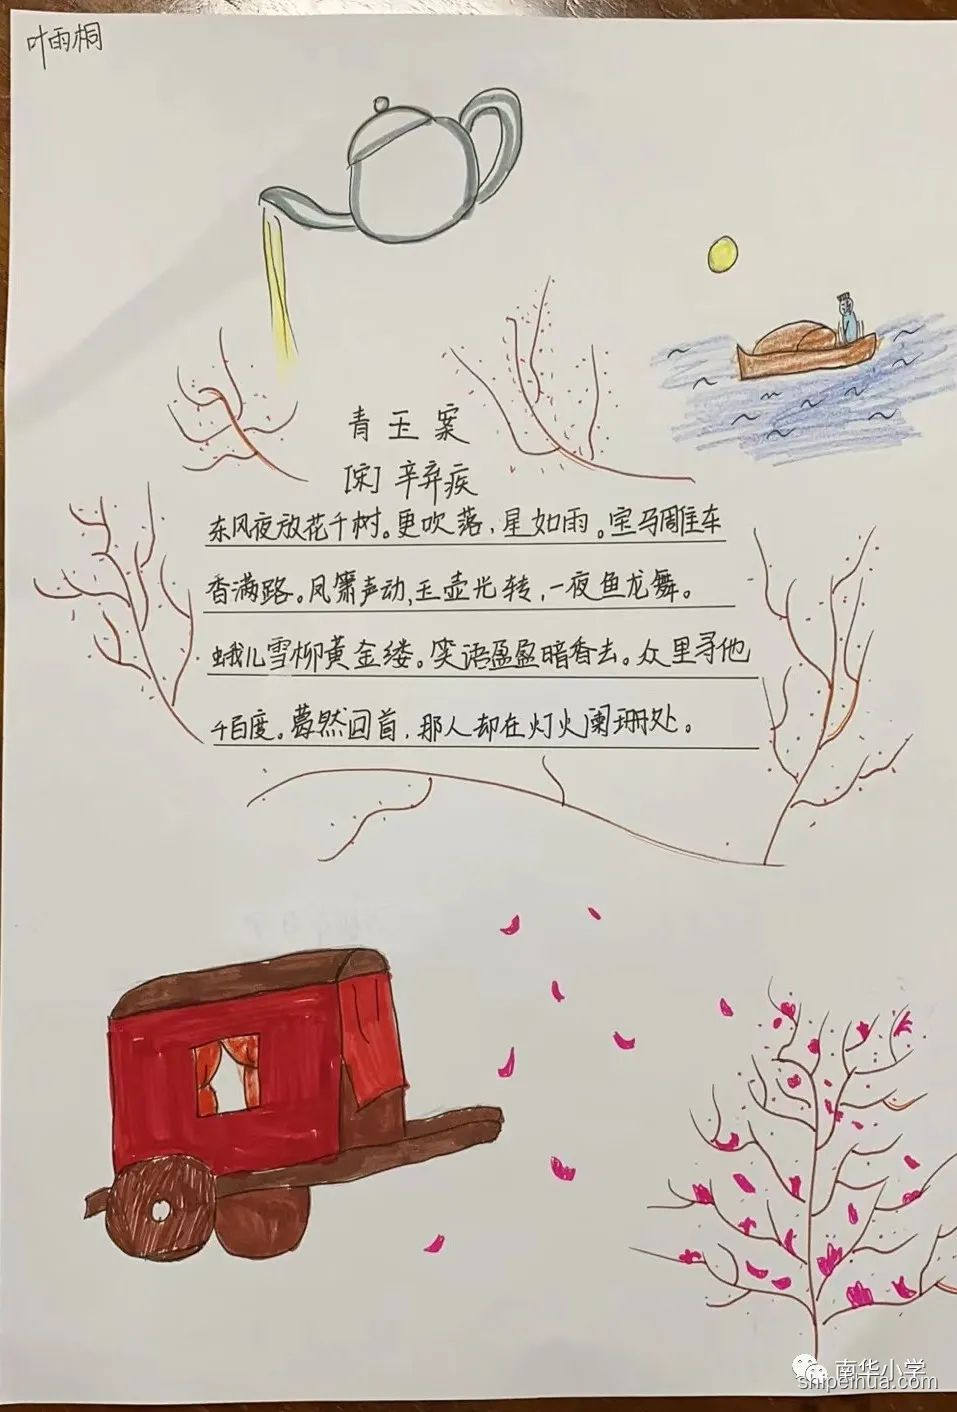 叶雨桐
青玉案
[宋]辛弃疾
东风夜放花千树。更吹落,星如雨。宝马雕车
香满路。凤箫声动,玉壶光转,一夜鱼龙舞。
蛾儿雪柳黄金缕。笑语盈盈暗香去。众里寻他
千百度。蓦然回首,那人却在灯火阑珊处。
南华小学
shipeihua.com